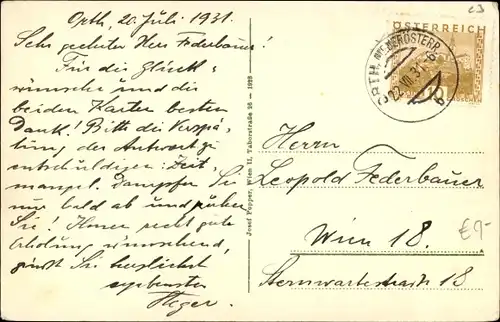 Orth, 20. Juli. 1931.
Sehr geehrter Herr Federbauer!
Für die Glück-
wünsche und die
beiden Karten besten
Dank! Bitte die Verspä-
tung der Antwort zu
entschuldigen: Zeit-
mangel. Dampfer Sie
nur bald ab und
Sie! Ihnen recht gute
Erholung wünschend,
grüsst Sie herzlichst
ergebenster
Heger.
Josef Popper, Wien II, Taborstraße 26 — 1928
ÖSTERREICH
10
ORTH, NIEDERÖSTERR.
22.VII.31
b
Herrn
Leopold Federbauer
Wien 18.
Sternwartestraße 18
€9-